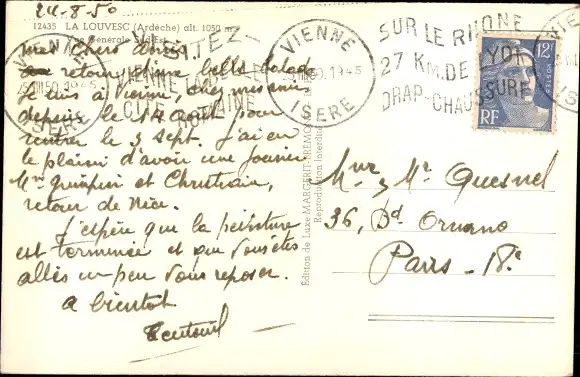 24-8-50
12435 LA LOUVESC (Ardèche) alt. 1050 m
Vue Générale
Mes Chers Amis
au retour d'une belle balade
je suis à Vienne, chez mes amis
depuis le 14 août pour
rentrer le 3 Sept. J'ai eu
le plaisir d'avoir une journée
Mme et Christian,
retour de Nice.
J'espère que la peinture
est terminée et que vous êtes
allés un peu vous reposer.
a bientôt
Édition de Luxe MARGERIT-BRÉMOND
Reproduction Interdite
VISITEZ
VIENNE LA
CITÉ ROMAINE
VIENNE
ISERE
SUR LE RHONE
27 KM. DE LYON
DRAP-CHAUSSURE
VIENNE
ISERE
12F
POSTES
RF
Mme & Mr Quesnel
36, Bd Ornano
Paris - 18e